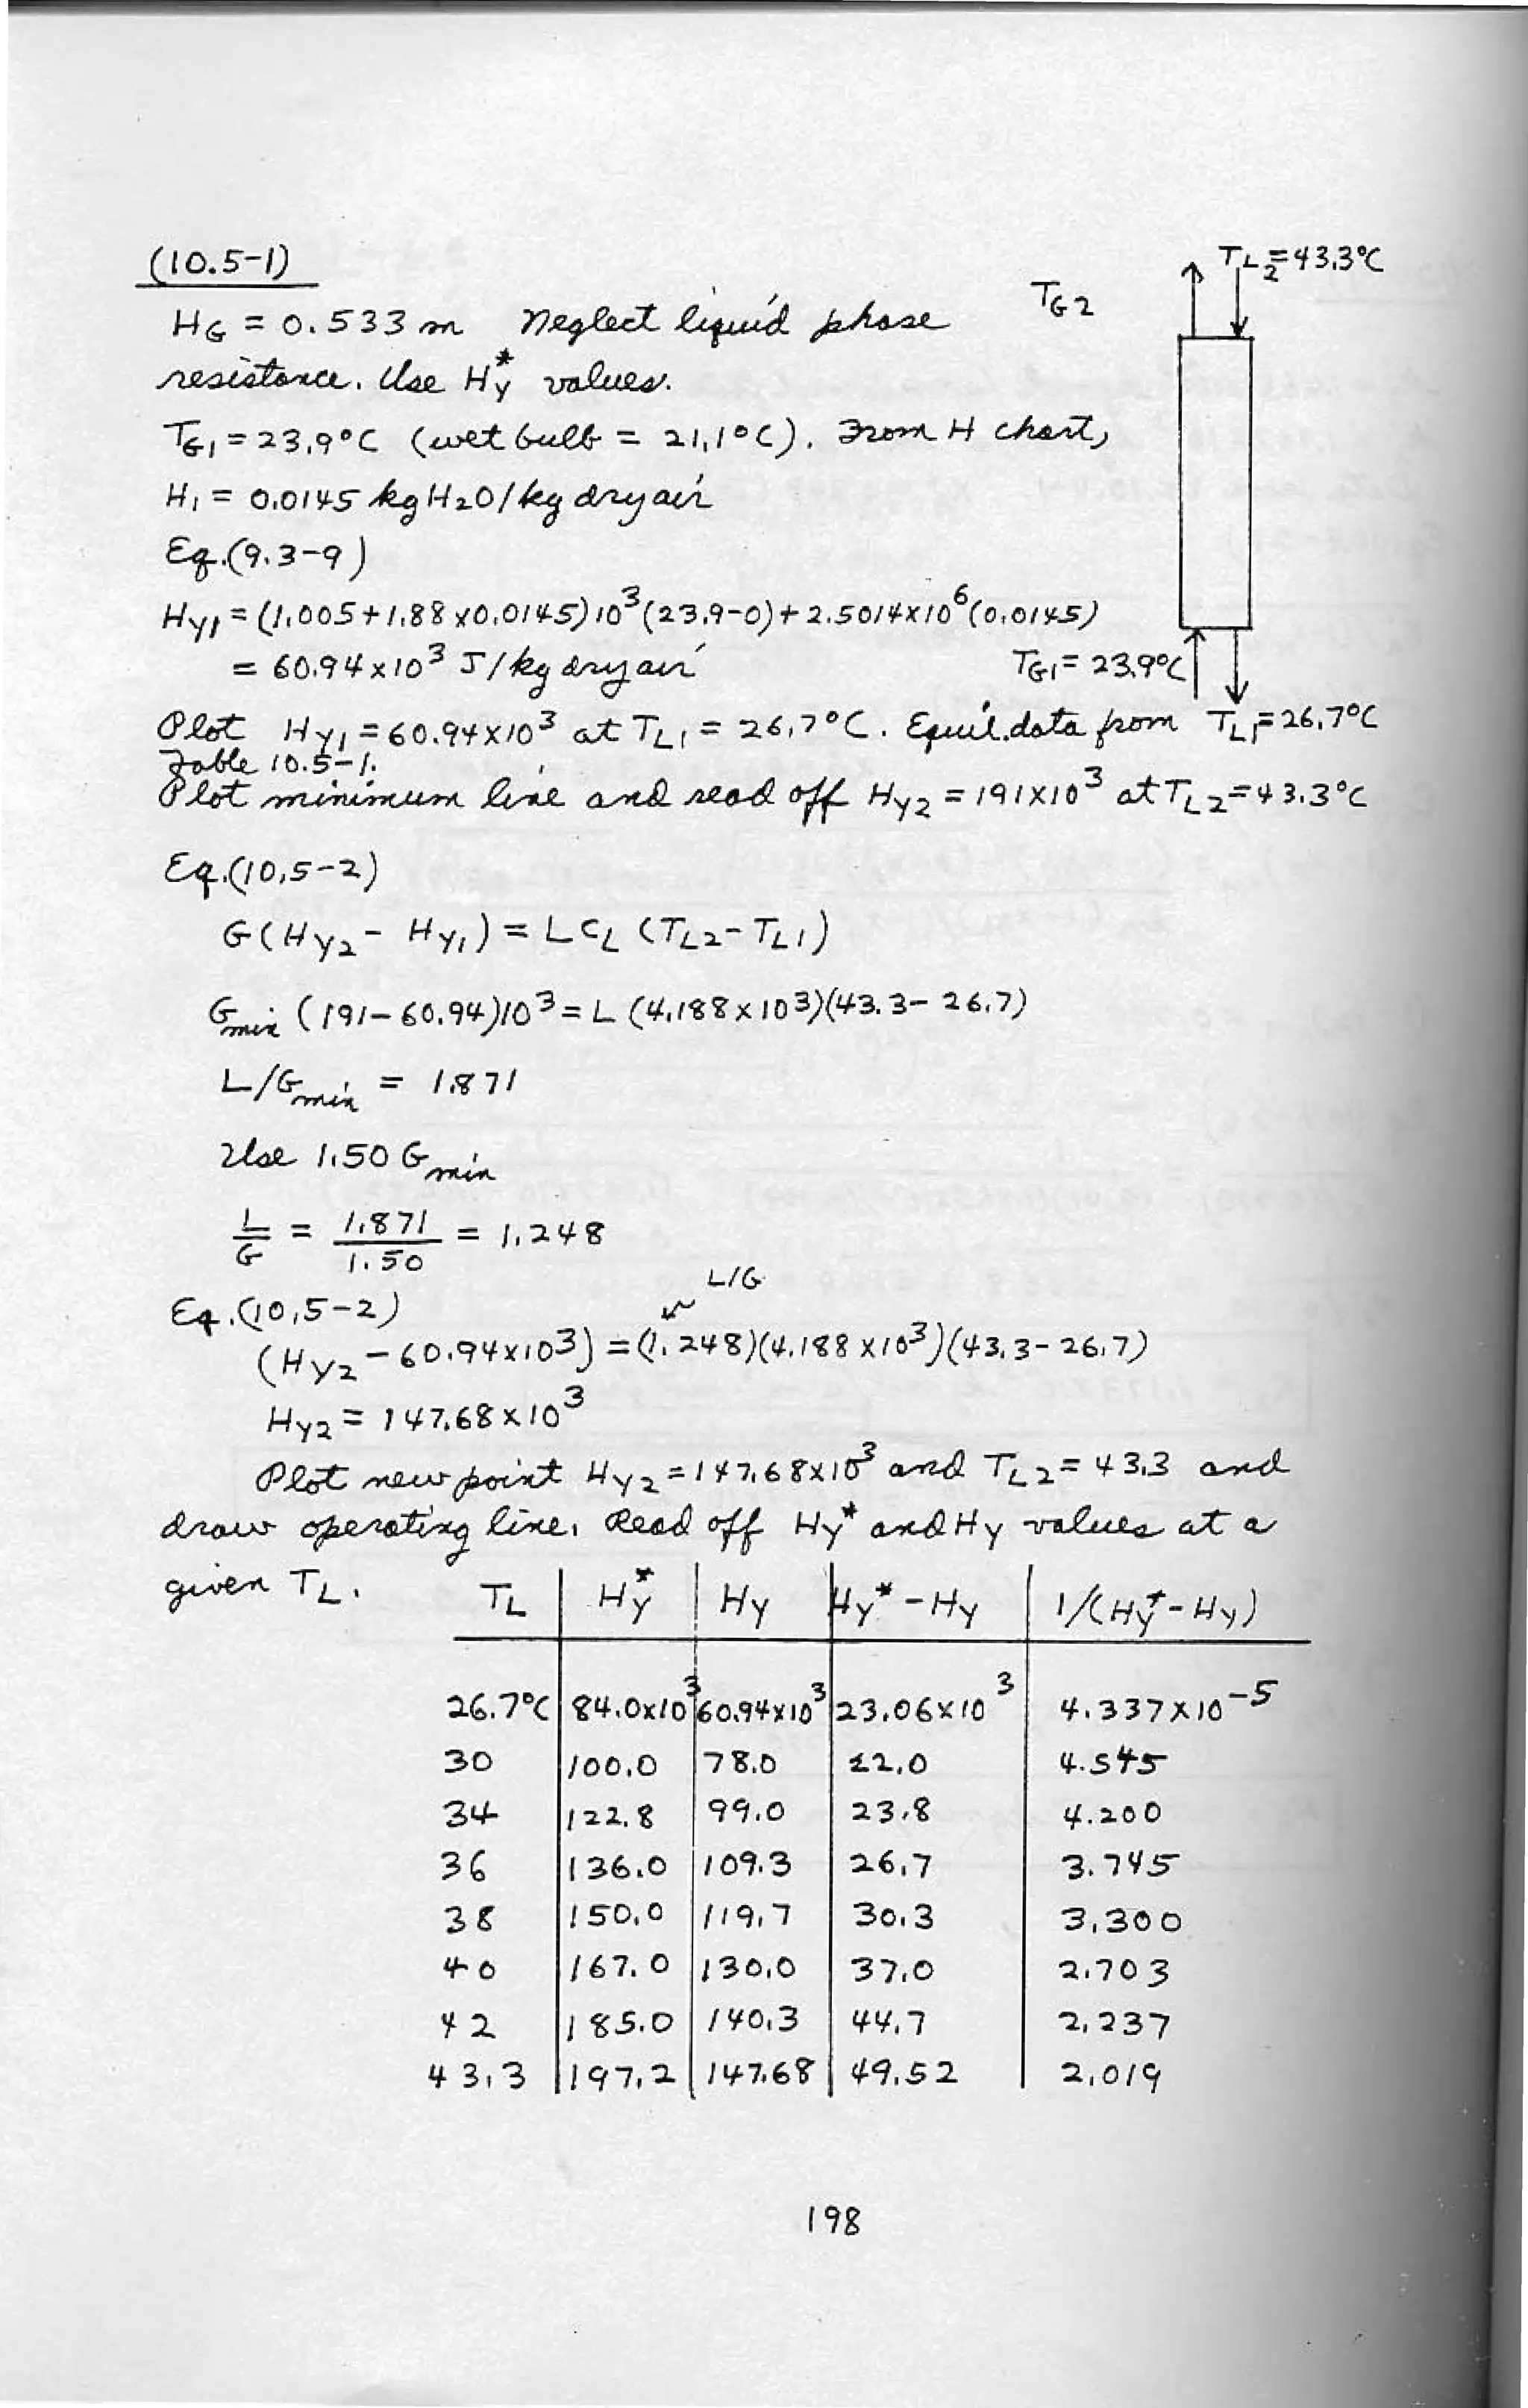 (10.5-1)
T_L2 = 43.3°C
T_G2
H_G = 0.533 m Neglect liquid phase
resistance. Use H_y* values.
T_G1 = 23.9°C (wet bulb = 21.1°C). From H chart,
H_1 = 0.0145 kg H2O/kg dry air
Eq.(9.3-9)
H_y1 = (1.005 + 1.88 x 0.0145) 10^3 (23.9-0) + 2.5014 x 10^6 (0.0145)
= 60.94 x 10^3 J/kg dry air
T_G1 = 23.9°C
Plot H_y1 = 60.94 x 10^3 at T_L1 = 26.7°C. Equil. data from
T_L1 = 26.7°C
Table 10.5-1.
Plot minimum line and read off H_y2 = 191 x 10^3 at T_L2 = 43.3°C
Eq.(10.5-2)
G (H_y2 - H_y1) = L c_L (T_L2 - T_L1)
G_min (191 - 60.94) 10^3 = L (4.188 x 10^3)(43.3 - 26.7)
L/G_min = 1.871
Use 1.50 G_min
L/G = 1.871/1.50 = 1.248
L/G
Eq.(10.5-2)
(H_y2 - 60.94 x 10^3) = (1.248)(4.188 x 10^3)(43.3 - 26.7)
H_y2 = 147.68 x 10^3
Plot new point H_y2 = 147.68 x 10^3 and T_L2 = 43.3 and
draw operating line. Read off H_y* and H_y values at a
given T_L.
T_L | H_y* | H_y | H_y* - H_y | 1/(H_y* - H_y)
26.7°C | 84.0 x 10^3 | 60.94 x 10^3 | 23.06 x 10^3 | 4.337 x 10^-5
30 | 100.0 | 78.0 | 22.0 | 4.545
34 | 122.8 | 99.0 | 23.8 | 4.200
36 | 136.0 | 109.3 | 26.7 | 3.745
38 | 150.0 | 119.7 | 30.3 | 3.300
40 | 167.0 | 130.0 | 37.0 | 2.703
42 | 185.0 | 140.3 | 44.7 | 2.237
43.3 | 197.2 | 147.68 | 49.52 | 2.019
198